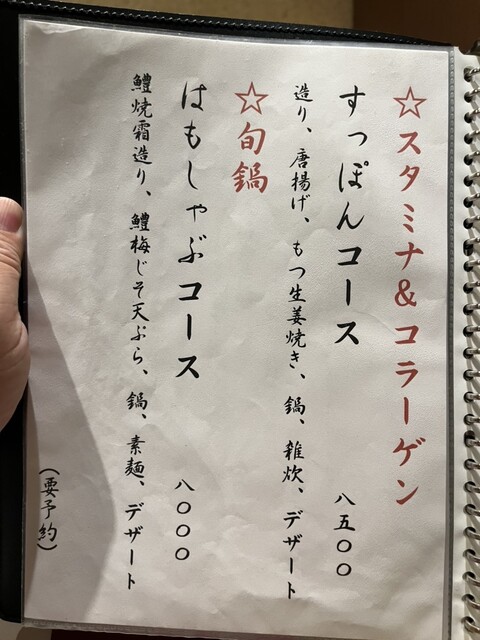 ☆スタミナ&コラーゲン
すっぽんコース 八五〇〇
造り、唐揚げ、もつ生姜焼き、鍋、雑炊、デザート
☆旬鍋
はもしゃぶコース 八〇〇〇
鱧焼霜造り、鱧梅じそ天ぷら、鍋、素麺、デザート
(要予約)